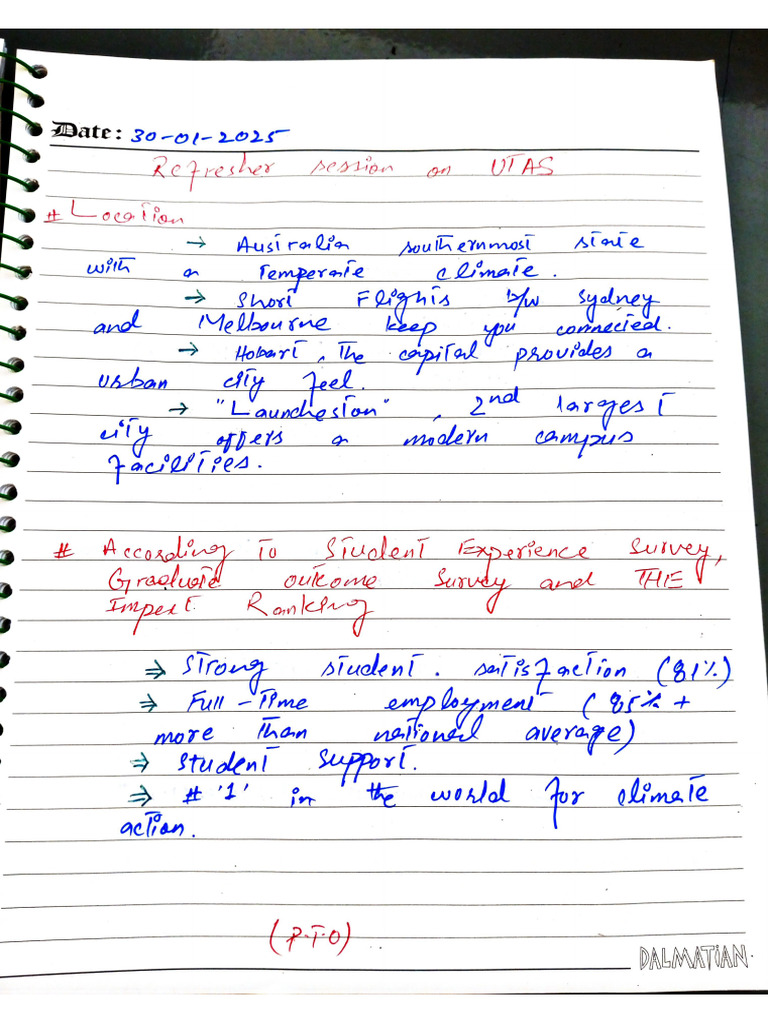 Date: 30-01-2025
Refresher session on UTAS
# Location
→ Australia southernmost state
with a temperate climate.
→ Short Flights b/w Sydney
and Melbourne keep you connected.
→ Hobart, the capital provides a
urban city feel.
→ "Launcheston", 2nd largest
city offers a modern campus
facilities.
# According to Student Experience Survey,
Graduate outcome Survey and THE
Impect Ranking
⇒ Strong student. satisfaction (81%)
⇒ Full-Time employment (85% +
more than national average)
⇒ Student support.
⇒ # '1' in the world for climate
action.
(P.T.O)
DALMATIAN